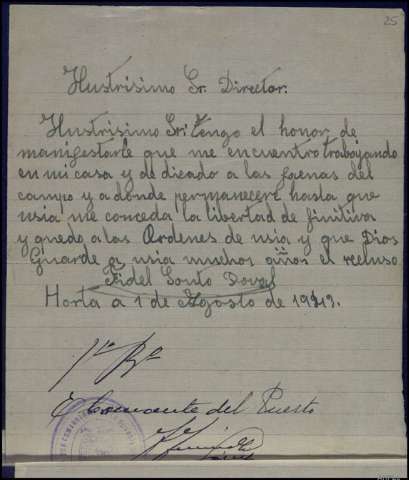 25
Ilustrisimo Sr. Director:
Ilustrisimo Sr: Tengo el honor de
manifestarle que me encuentro trabajando
en mi casa y de dicado a las faenas del
campo y a donde permaneceré hasta que
usia me conceda la libertad de finitiva
y quedo a las Ordenes de usia y que Dios
Guarde a usia muchos años el recluso
Fidel Souto Doval
Horta a 1 de Agosto de 1943.
Vº Bº
El Comandante del Puesto